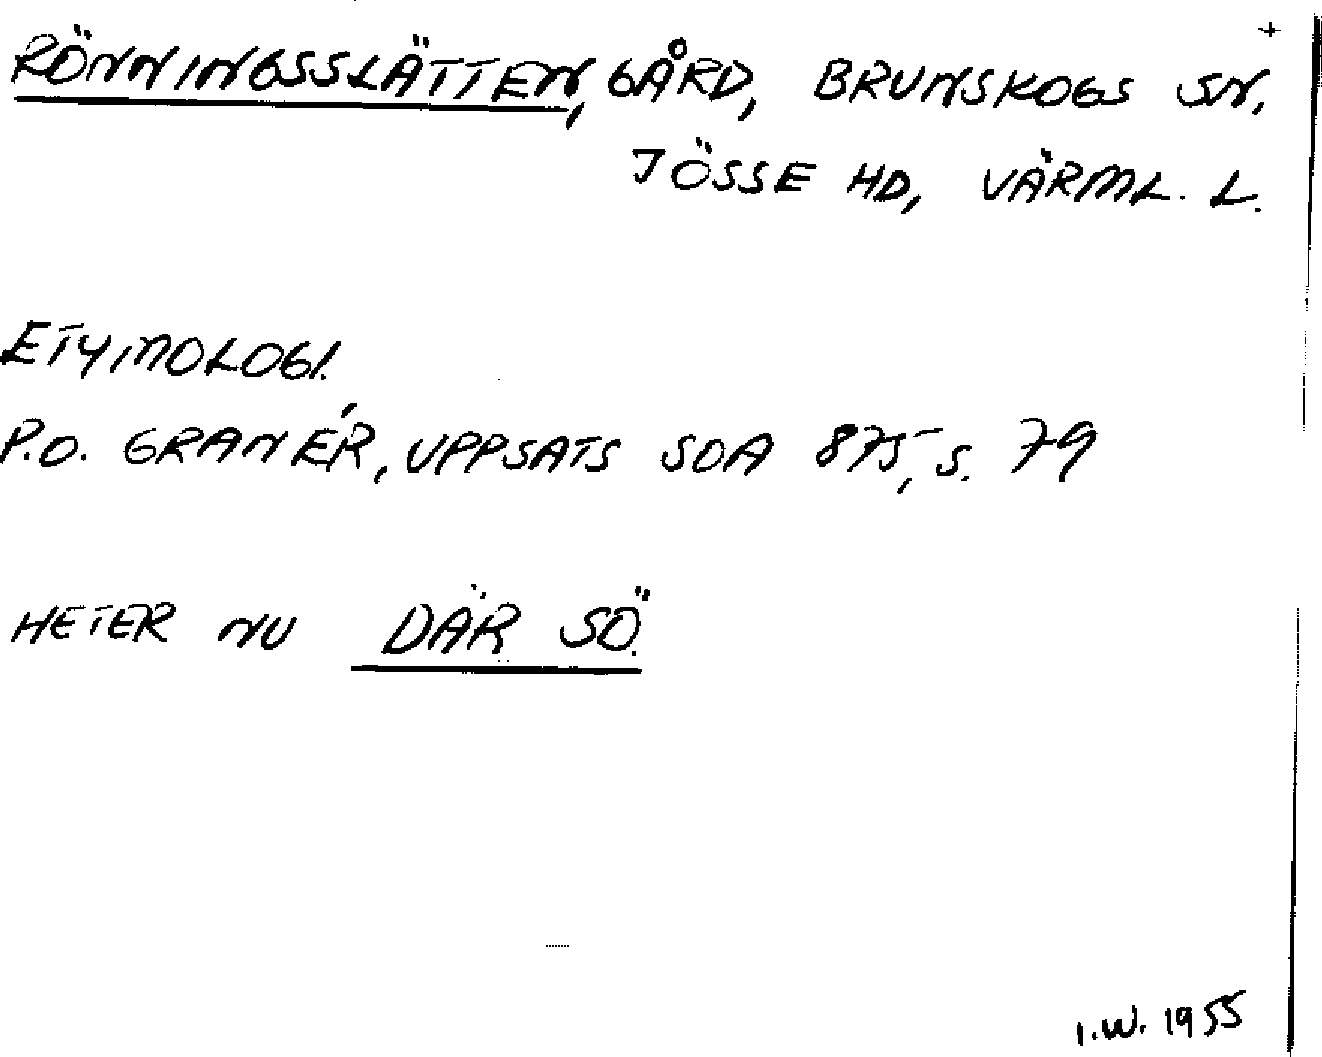 +
RÖNNINGSSLÄTTEN, GÅRD, BRUNSKOGS SN.
JÖSSE HD, VÄRML. L.
ETYMOLOGI.
P.O. GRANÉR, UPPSATS SOA 875, S. 79
HETER NU DÄR SÖ.
I.W. 1955